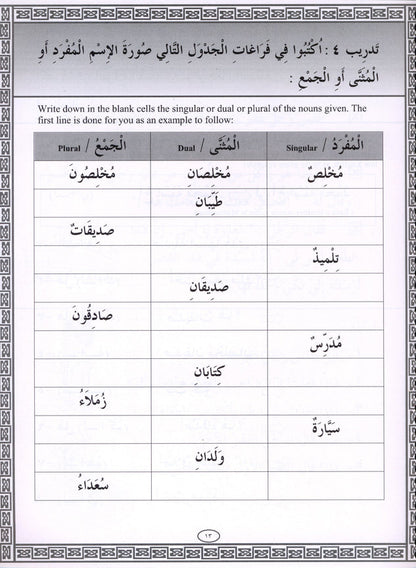 تدريب ٤ : اُكْتُبُوا فِي فَرَاغَاتِ الْجَدْوَلِ التَّالِي صُورَةَ الإِسْمِ الْمُفْرَدِ أَوِ
الْمُثَنَّى أَوِ الْجَمْعِ :
Write down in the blank cells the singular or dual or plural of the nouns given. The
first line is done for you as an example to follow:
الْمُفْرَدُ / Singular الْمُثَنَّى / Dual الْجَمْعُ / Plural
مُخْلِصٌ مُخْلِصَانِ مُخْلِصُونَ
طَيِّبَانِ
صَدِيقَاتٌ
تِلْمِيذٌ
صَدِيقَانِ
صَادِقُونَ
مُدَرِّسٌ
كِتَابَانِ
زُمَلَاءُ
سَيَّارَةٌ
وَلَدَانِ
سُعَدَاءُ
١٣